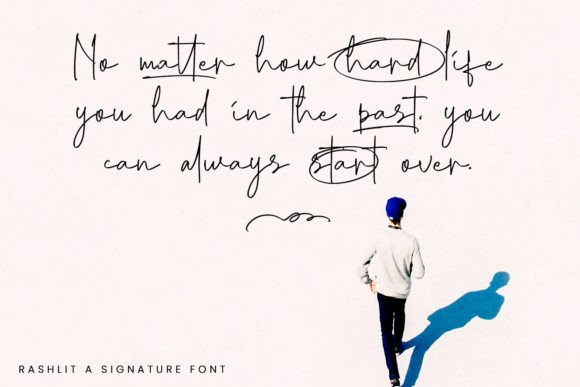 No matter how hard life
you had in the past, you
can always start over.
RASHLIT A SIGNATURE FONT